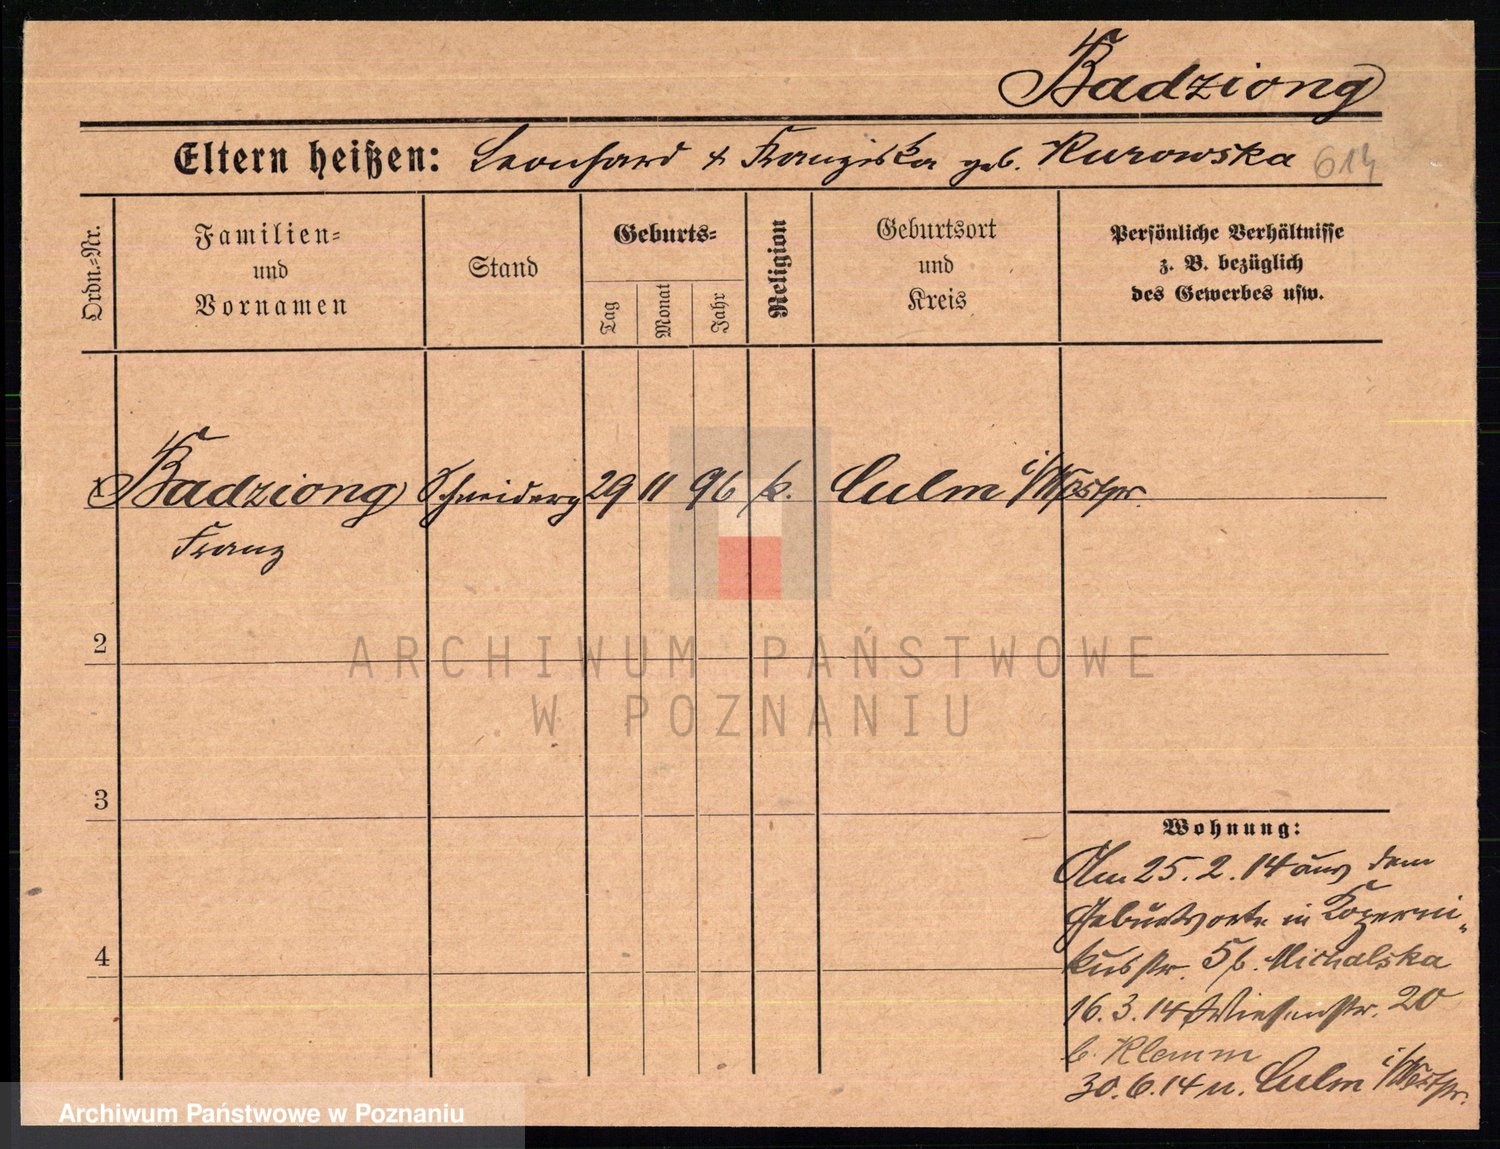 Badziong
Eltern heißen: Leonhard & Franziska geb. Kurowska 614
Ordn.=Nr.
Familien=
und
Vornamen
Stand
Geburts=
Tag
Monat
Jahr
Religion
Geburtsort
und
Kreis
Persönliche Verhältnisse
z. B. bezüglich
des Gewerbes usw.
1 Badziong Schneiderg 29 11 96 k. Culm i/Westpr.
Franz
2
ARCHIWUM PAŃSTWOWE
W POZNANIU
3
Wohnung:
Am 25.2.14 aus dem
Geburtsorte in Koperni-
4
kusstr. 5 b. Michalska
16.3.14 Wiesenstr. 20
b. Klemm
30.6.14 n. Culm i/Westpr.
Archiwum Państwowe w Poznaniu